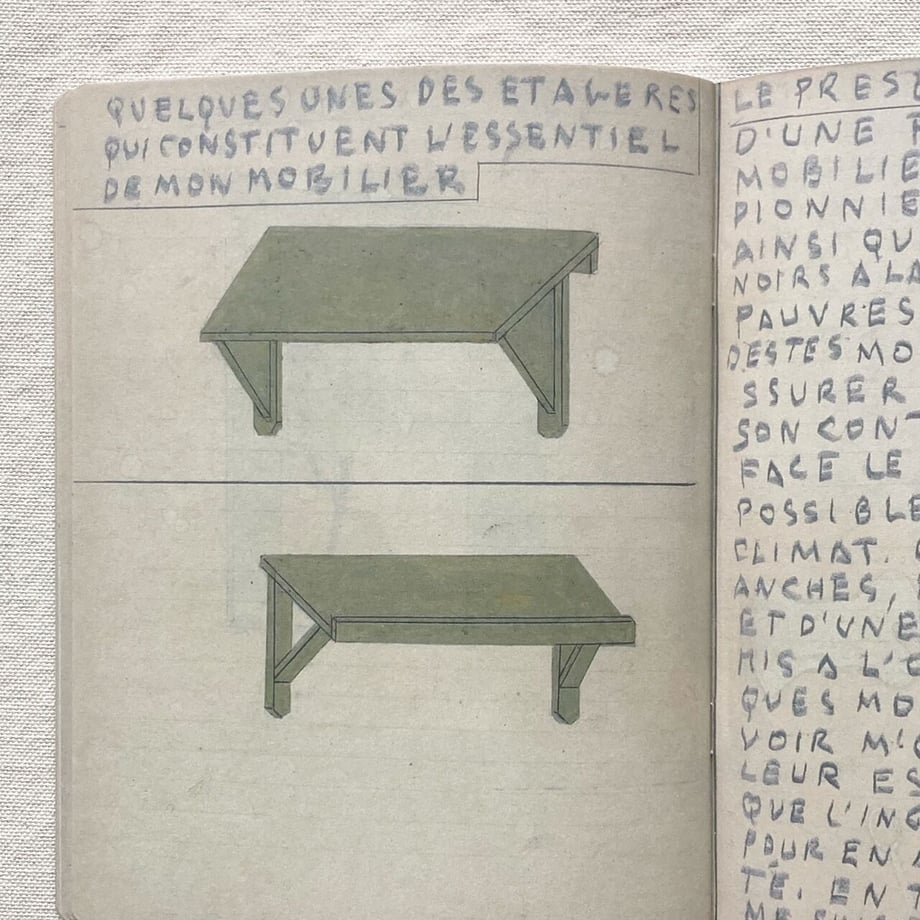 QUELQUES UNES DES ETAGERES
QUI CONSTITUENT L'ESSENTIEL
DE MON MOBILIER
LE PRESE
D'UNE
MOBILIE
PIONNIE
AINSI QU
NOIRS A LA
PAUVRES
DESTES MO
SSURER
SON CONT
FACE LE
POSSIBLE
CLIMAT.
ANCHES,
ET D'UNE
MIS A L'
QUES MO
VOIR M'
LEUR ES
QUE L'ING
POUR EN
TÉ. EN T